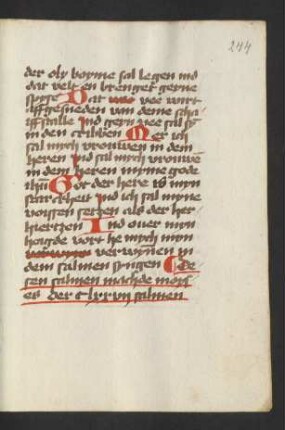 244
der oly boyme sal legen ind
dat velt en brenget geyne
spyse Dat vee wirt
affgesneden van deme scha
ffstalle Ind geyn vee sal syn
in den cribben Mer ich
sal mych vrouwen in dem
heren Ind sal mych vrouwen
in dem heren myme gode
ihu Got der here is myn
starckheit Ind ich sal myne
voyssen setzen als der her
hiertzen Ind over myn
hoigde vort he mych myn
verwynen in
dem salmen syngen De
sen salmen machde moy
es der Clxxvij salmen